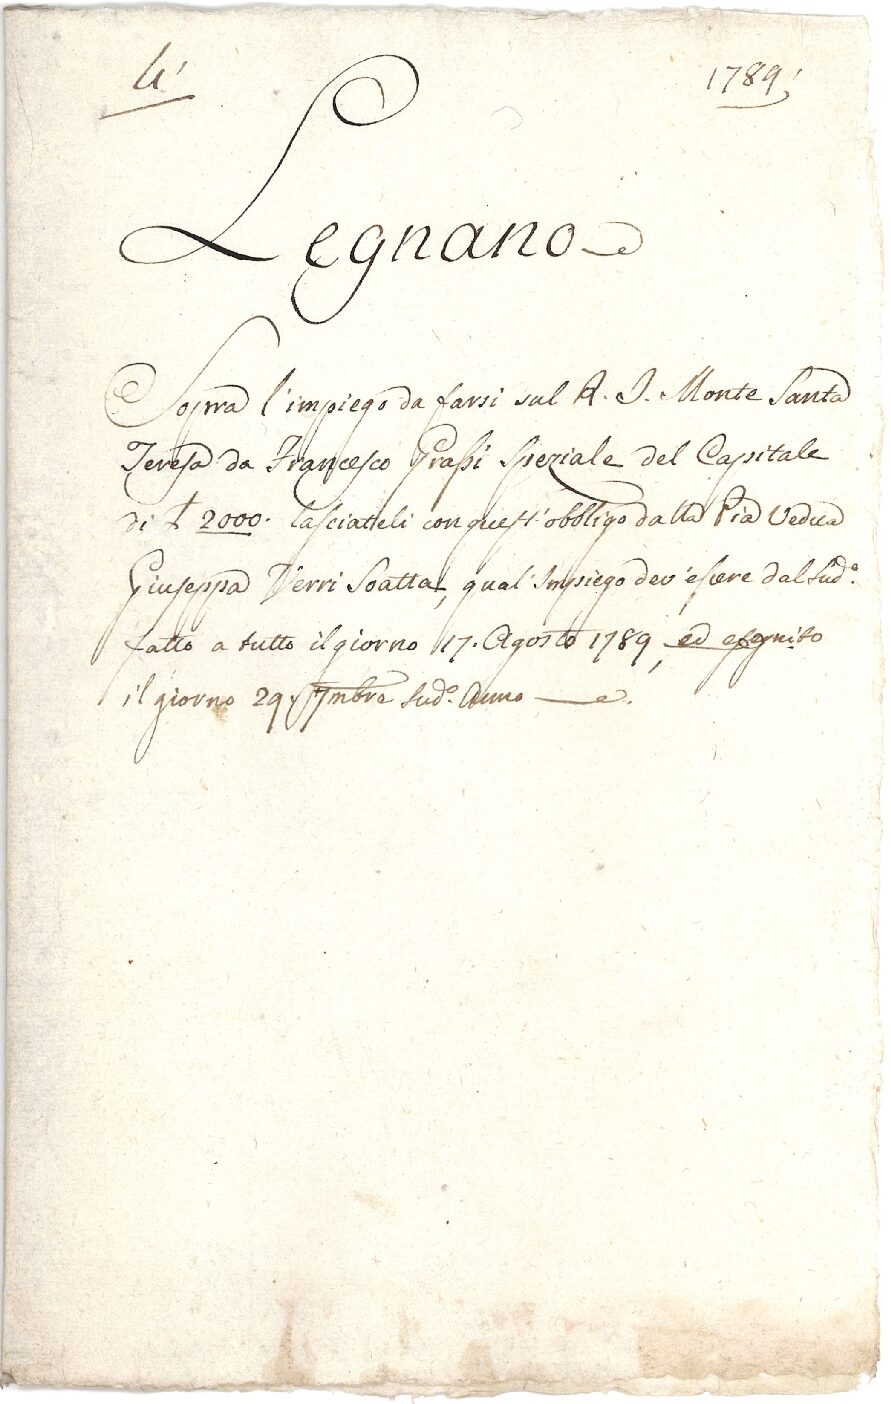 4'
1789'
Legnano
Sopra l'impiego da farsi sul R. I. Monte Santa
Teresa da Francesco Grassi Speziale del Capitale
di £ 2000. lasciatteli con quest'obbligo dalla Pia Vedua
Giuseppa Verri Soatta, qual'Impiego dev'essere dal sud.º
fatto a tutto il giorno 17. Agosto 1789, ed eseguito
il giorno 29. 7mbre sud.º Anno